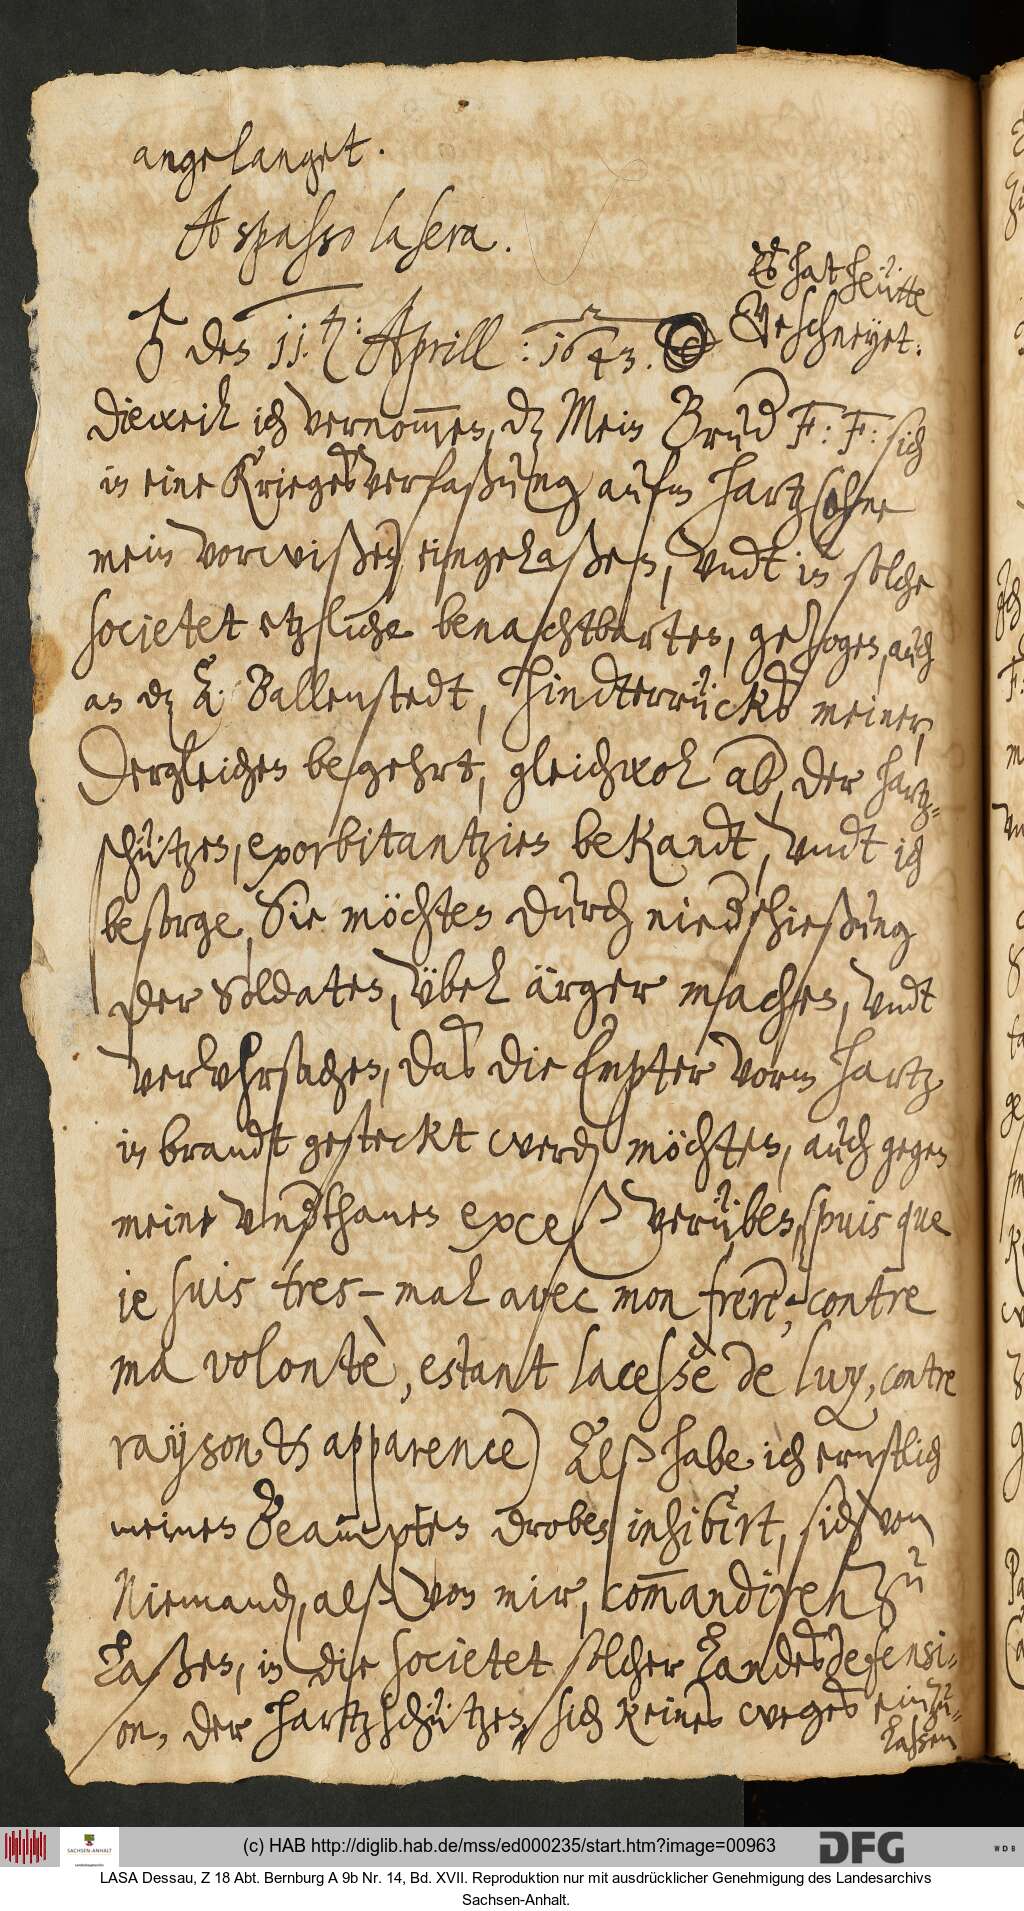 angelanget.
A spasso la sera.
Es hat heütte
Geschneyet.
♂ des 11. ten: Aprill : 1643.
Dieweil ich vernom̅en, dz Mein Brud F: F: sich
in eine Kriegesverfaßung aufm Hartz (ohne
mein vorwißen) eingelaßen, vndt in solche
societet etzliche benachtbarten, gezogen, auch
an dz A. Ballenstedt, hindterrücks meiner,
Dergleichen begehrt, gleichwol ab, der Hartz-
schützen, exorbitantzien bekandt, vndt ich
besorge, Sie möchten durch niedschießung
der Soldaten, übel ärger machen, vndt
veruhrsachen, das die Empter vorm Hartz
in brandt gesteckt werden möchten, auch gegen
meine vndthanen exceß verüben, (puis que
je suis tres-mal avec mon frere, contre
ma volontè, estant lacessè de luy, contre
rayson & apparence) Alß habe ich ernstlich
meinen Beampten droben inhibirt, sich von
Niemandt, alß von mir, com̅andiren zu
Laßen, in die societet solcher Landesdefensi-
on, der Hartzschützen, sich keines weges einzu-
Laßen
(c) HAB http://diglib.hab.de/mss/ed000235/start.htm?image=00963
SACHSEN-ANHALT
DFG
WDB
LASA Dessau, Z 18 Abt. Bernburg A 9b Nr. 14, Bd. XVII. Reproduktion nur mit ausdrücklicher Genehmigung des Landesarchivs
Sachsen-Anhalt.